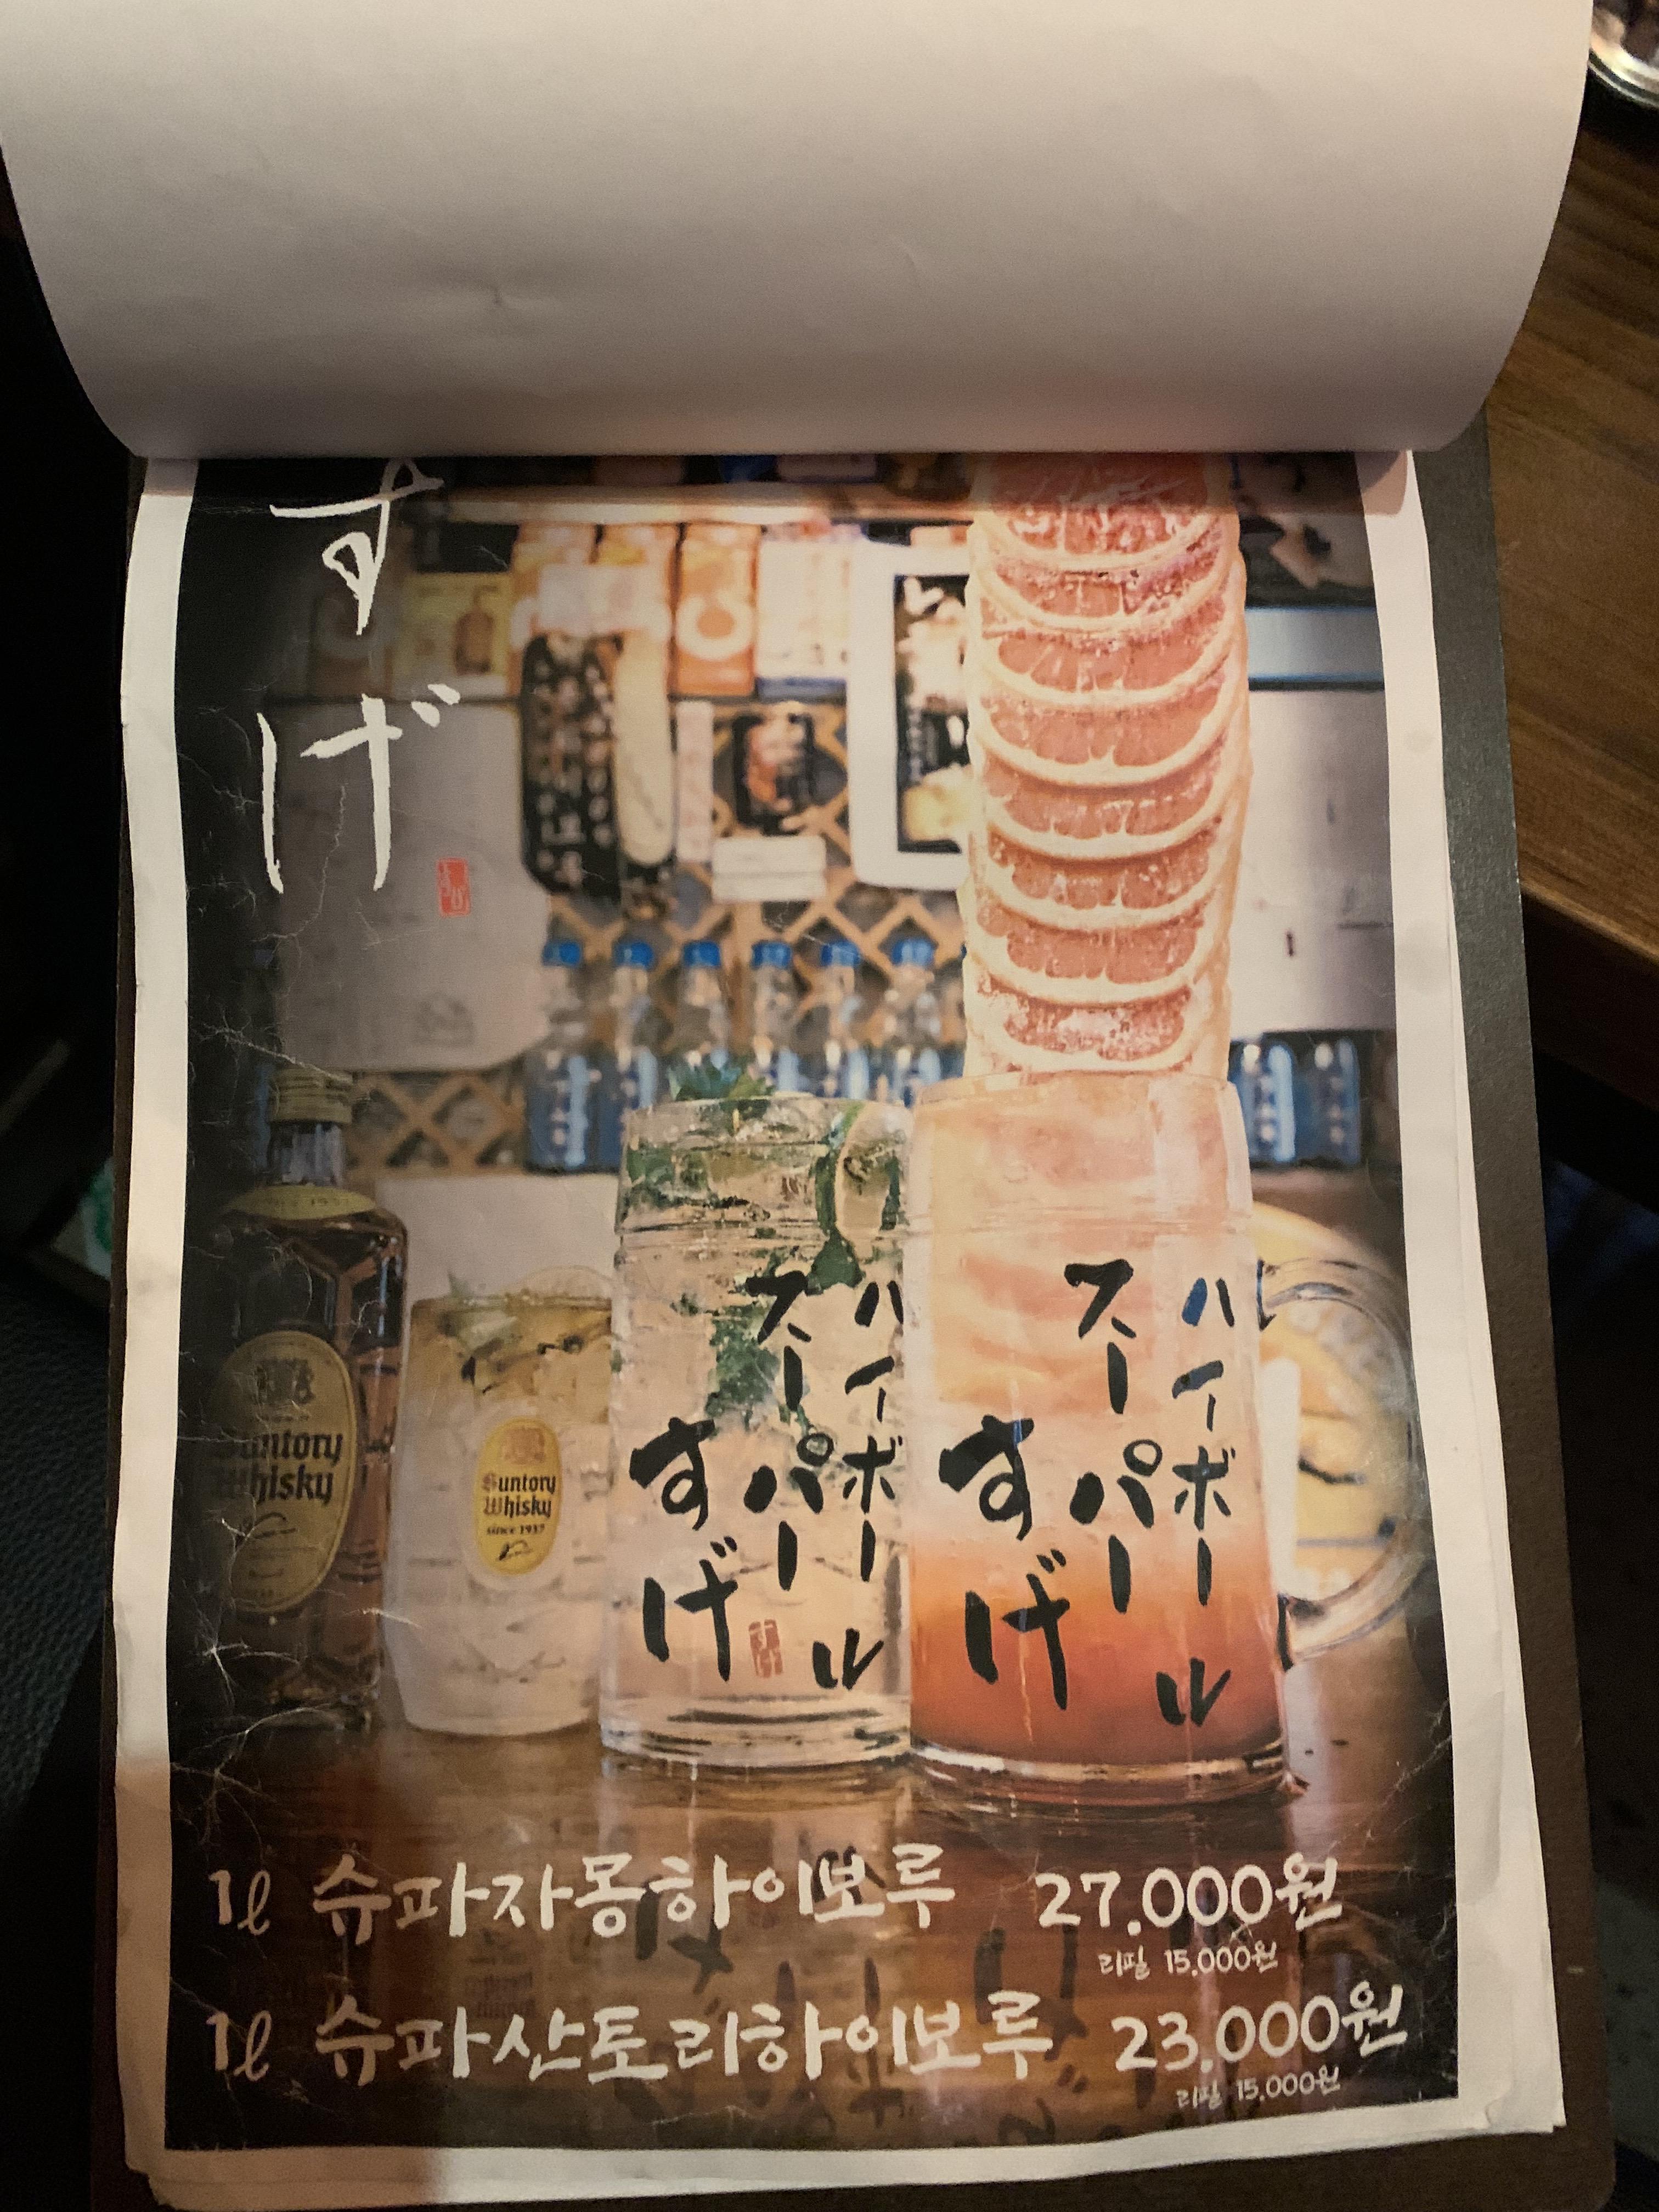 すげ
Suntory
Whisky
Suntory
Whisky
since 1937
ハイボール
スーパー
すげ
ハイボール
スーパー
すげ
1ℓ 슈퍼자몽하이보루 27,000원
리필 15,000원
1ℓ 슈퍼산토리하이보루 23,000원
리필 15,000원